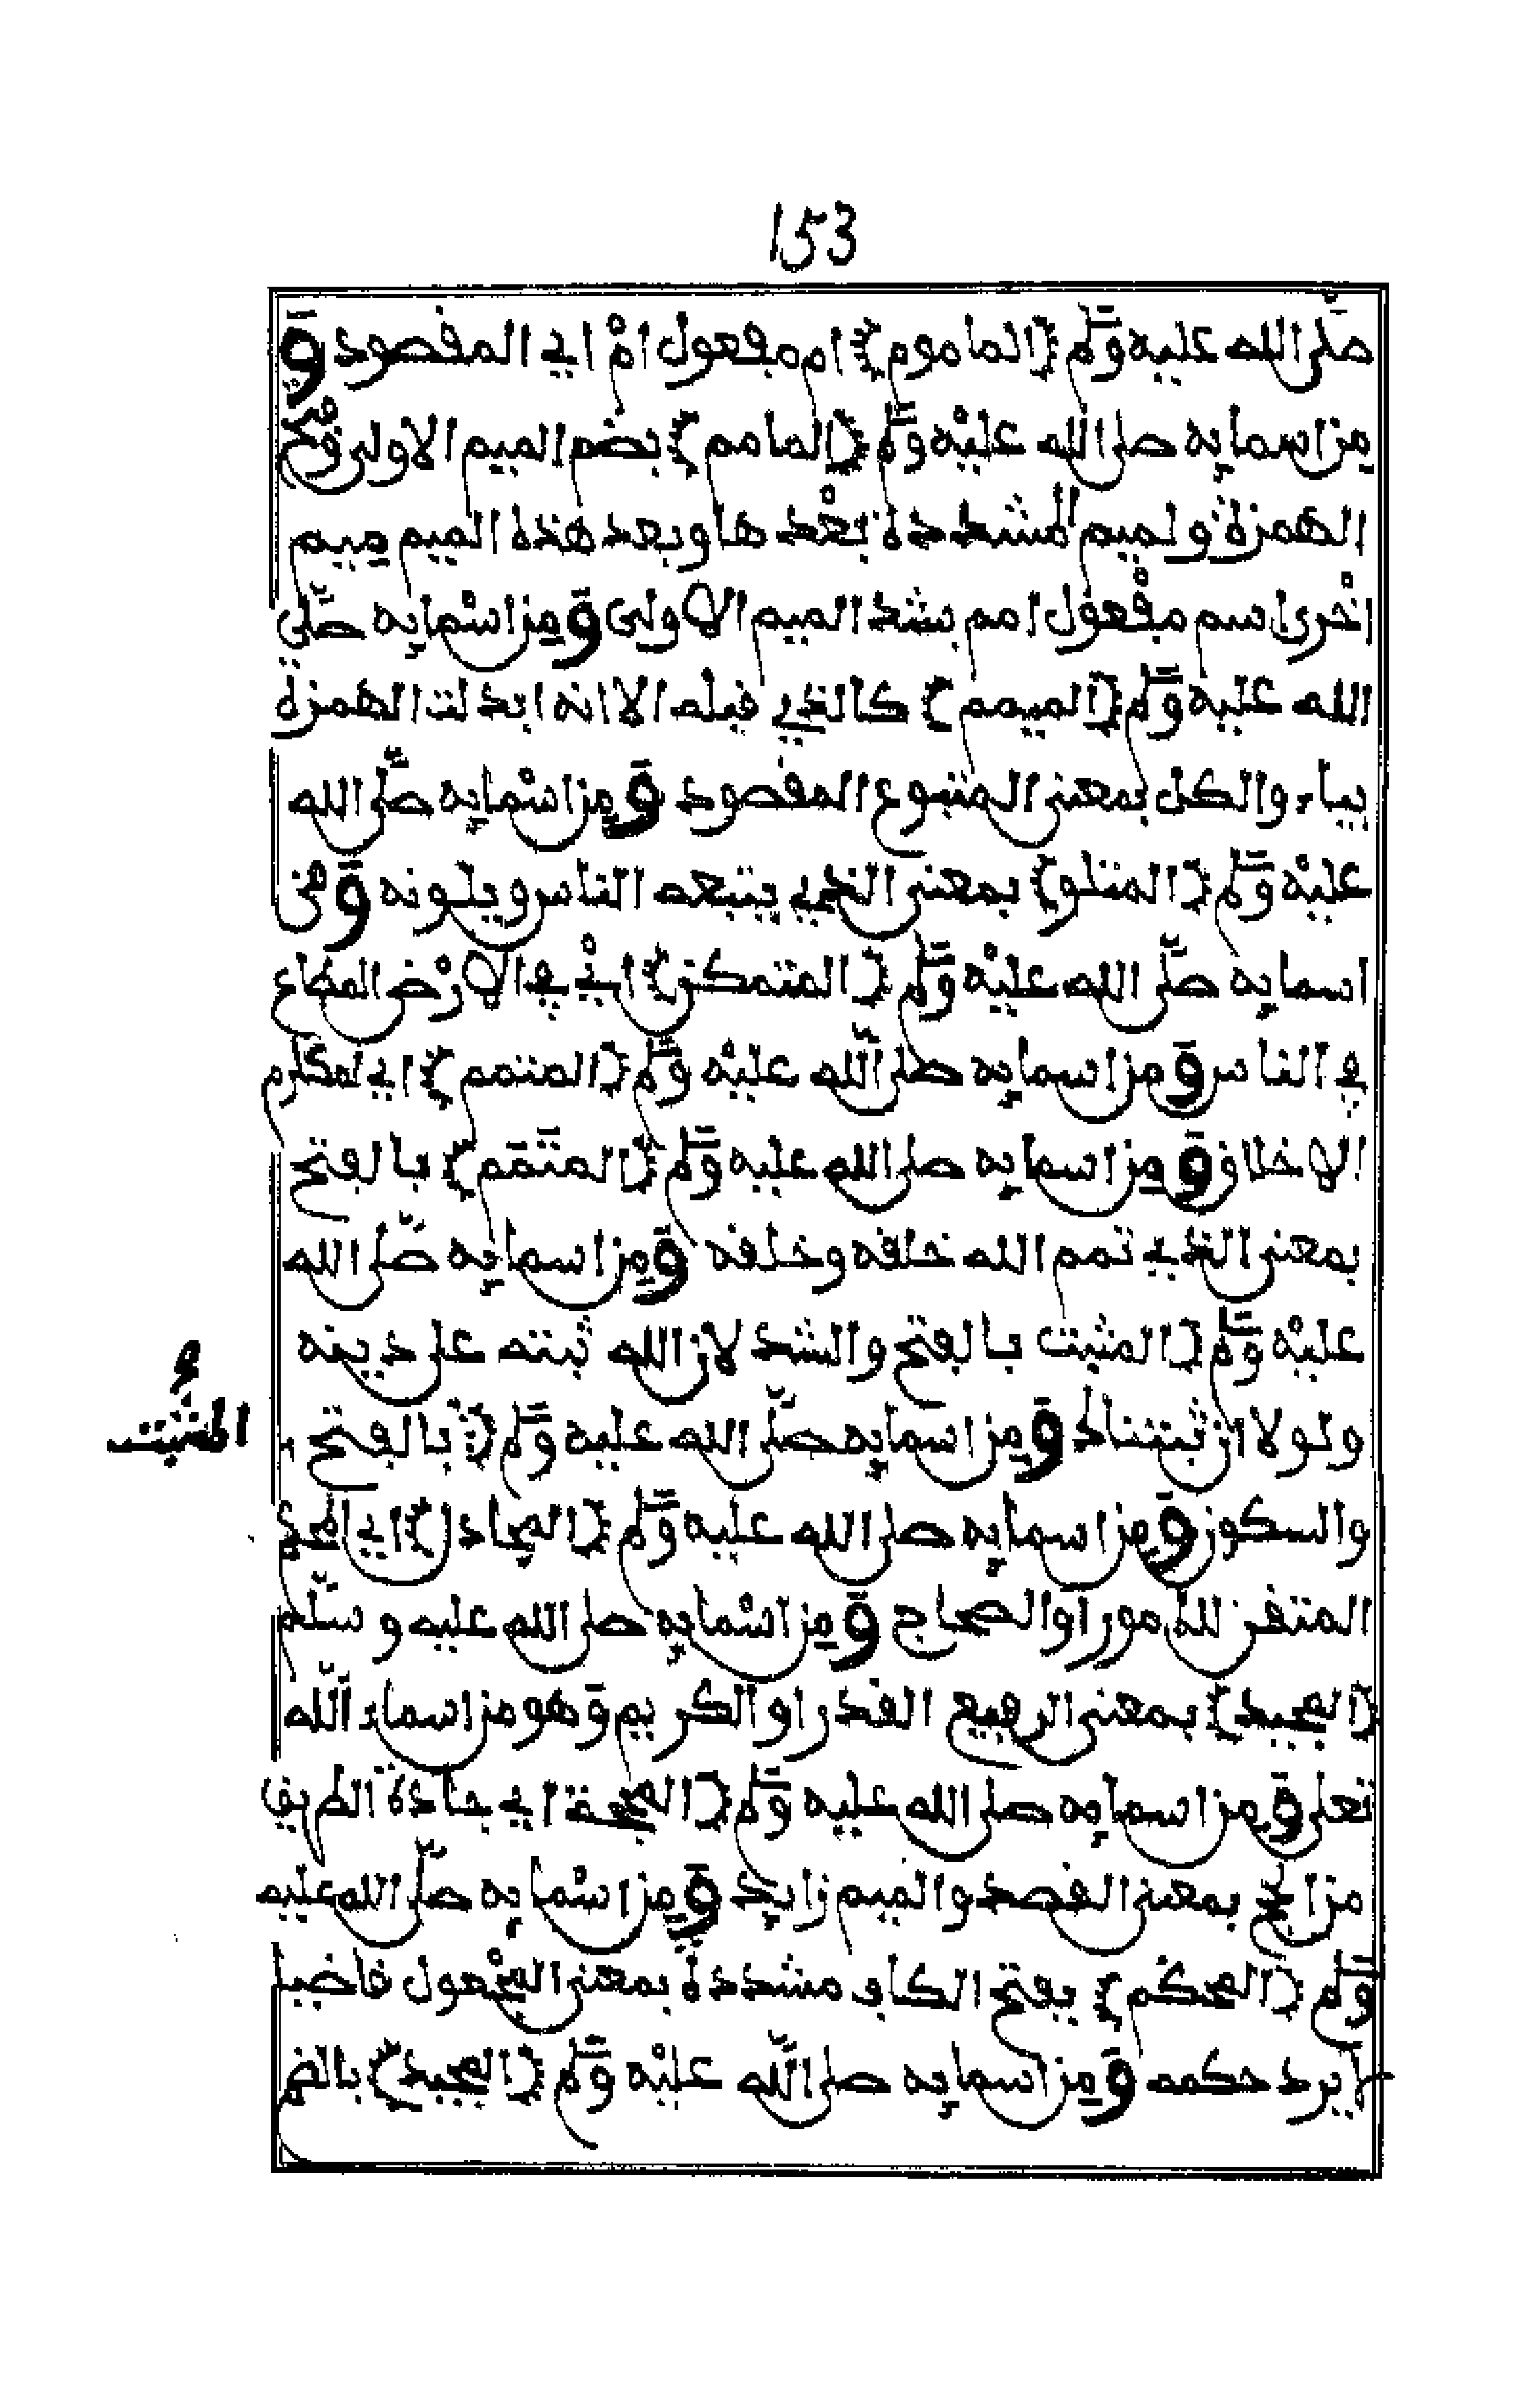 153
صلى الله عليه وسلم (الماموم) اممفعول ام اي المقصود و
من اسمايه صلى الله عليه وسلم (المامم) بضم الميم الاولى وفتح
الهمزة ولميم المشددة بعدها وبعد هذه الميم ميم
اخرى اسم مفعول امم بشد الميم الاولى ومن اسمايه صلى
الله عليه وسلم (الميمم) كالذي قبله الا انه ابدلت الهمزة
بياء والكل بمعنى المتبوع المقصود ومن اسمايه صلى الله
عليه وسلم (المتلو) بمعنى الذي يتبعه الناس ويلونه ومن
اسمايه صلى الله عليه وسلم (المتمكن) اي في الارض المطاع
في الناس ومن اسمايه صلى الله عليه وسلم (المتمم) اي لمكارم
الاخلاق ومن اسمايه صلى الله عليه وسلم (المتمم) بالفتح
بمعنى الذي تمم الله خلقه وخلقه ومن اسمايه صلى الله
عليه وسلم (المثبت بالفتح والشد لان الله ثبته على دينه
ولولا ان ثبتناك ومن اسمايه صلى الله عليه وسلم () بالفتح
المثبت
والسكون ومن اسمايه صلى الله عليه وسلم (المجادل) اي المحكم
المتقن للامور او الحجاج ومن اسمايه صلى الله عليه وسلم
(المجيد) بمعنى الرفيع القدر او الكريم وهو من اسماء الله
تعلى ومن اسمايه صلى الله عليه وسلم (المحجة اي جادة الطريق
من الحج بمعنى القصد والميم زايد ومن اسمايه صلى الله عليه
وسلم (المحكم) بفتح الكاف مشددة بمعنى المجعول قاضيا
لا يرد حكمه ومن اسمايه صلى الله عليه وسلم (المجيد) بالضم